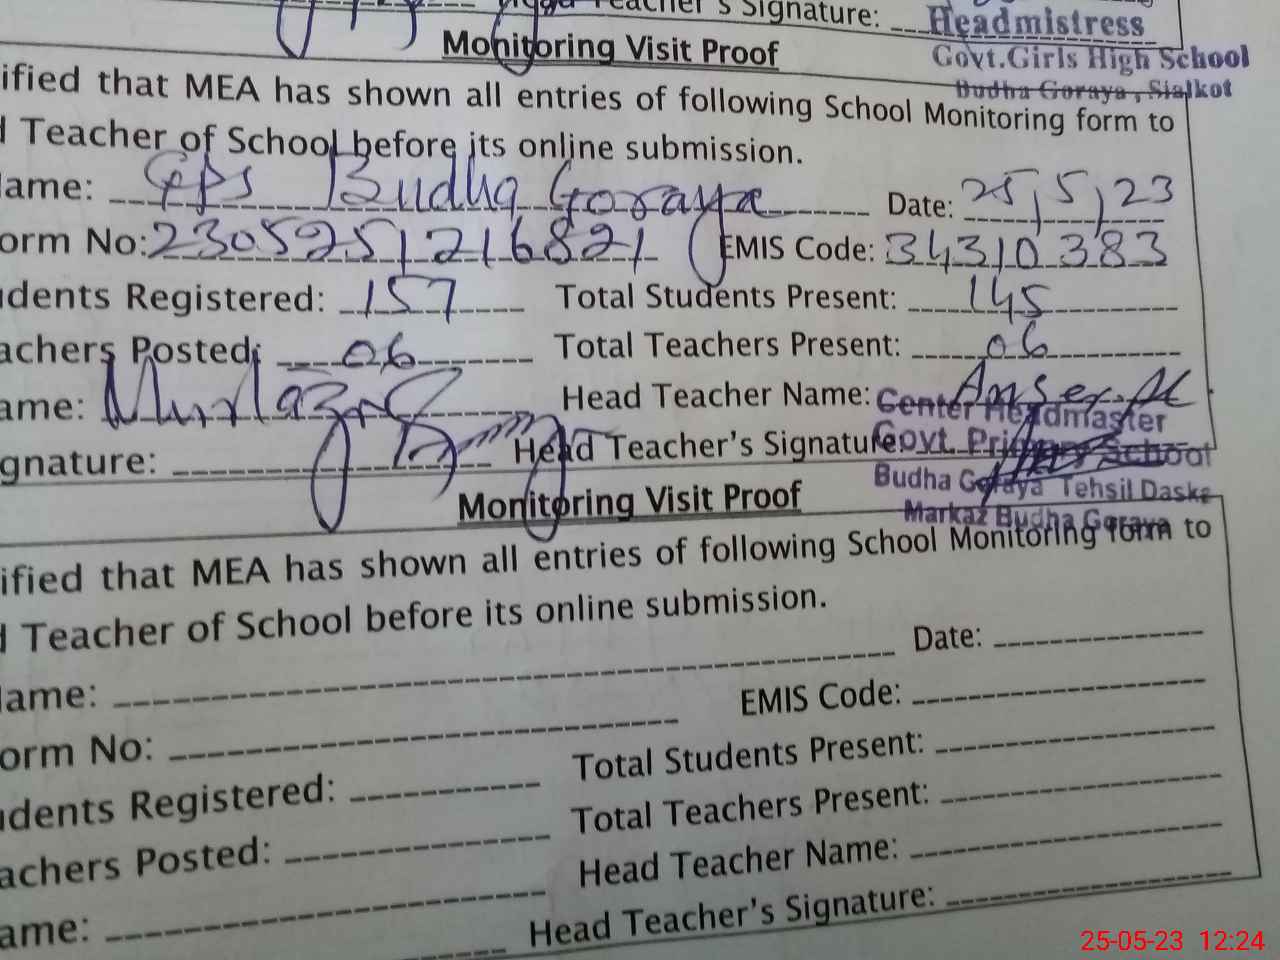 Teacher's Signature:
Headmistress
Govt.Girls High School
Budha Goraya , Sialkot
Monitoring Visit Proof
ified that MEA has shown all entries of following School Monitoring form to
d Teacher of School before its online submission.
lame: GPS Budha Goraya Date: 25/5/23
orm No: 2305251216821 EMIS Code: 34310383
dents Registered: 157 Total Students Present: 145
achers Posted: 06 Total Teachers Present: 06
ame: Head Teacher Name:
Center Headmaster
gnature: Head Teacher's Signature:
Govt. Primary School
Budha Goraya Tehsil Daska
Markaz Budha Goraya
Monitoring Visit Proof
ified that MEA has shown all entries of following School Monitoring form to
d Teacher of School before its online submission.
lame: Date:
orm No: EMIS Code:
dents Registered: Total Students Present:
achers Posted: Total Teachers Present:
ame: Head Teacher Name:
Head Teacher's Signature:
25-05-23 12:24